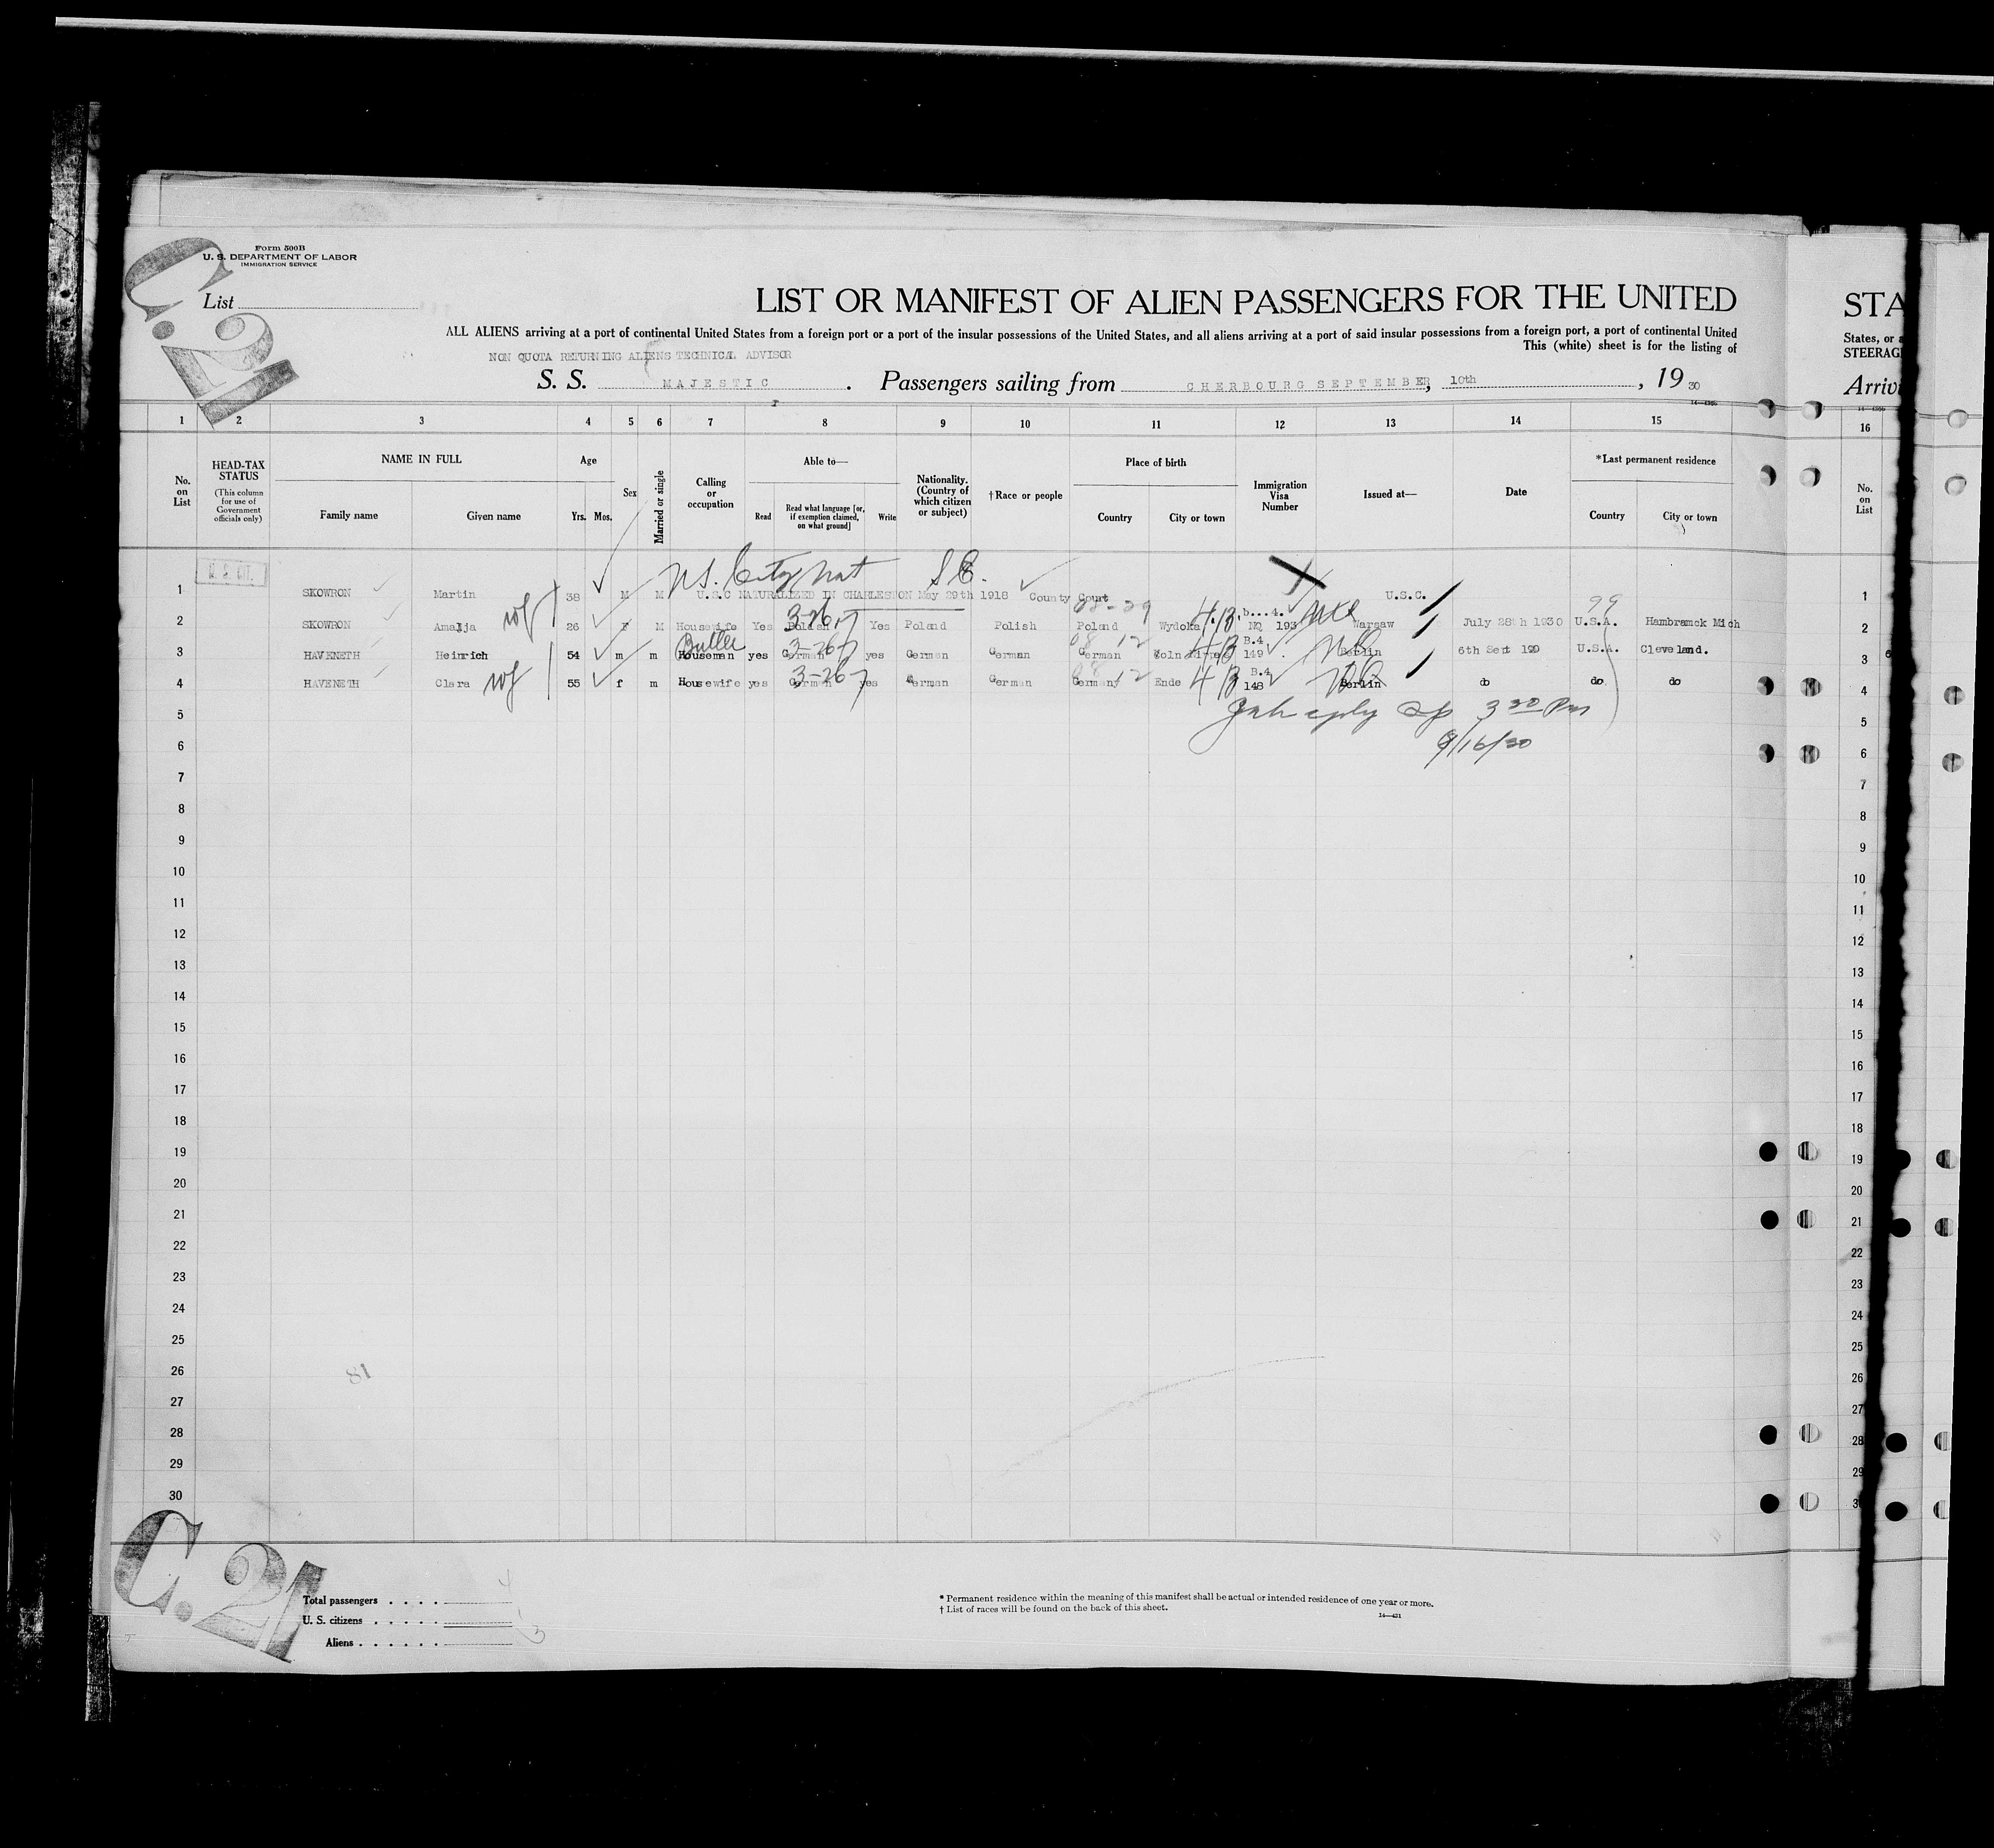 Form 500B
U. S. DEPARTMENT OF LABOR
IMMIGRATION SERVICE
C.21
List
LIST OR MANIFEST OF ALIEN PASSENGERS FOR THE UNITED
STA
ALL ALIENS arriving at a port of continental United States from a foreign port or a port of the insular possessions of the United States, and all aliens arriving at a port of said insular possessions from a foreign port, a port of continental United
States, or a
This (white) sheet is for the listing of
STEERAG
NON QUOTA RETURNING ALIENS TECHNICAL ADVISOR
S. S. MAJESTIC. Passengers sailing from CHERBOURG SEPTEMBER, 10th, 19 30
Arriv
1 2 3 4 5 6 7 8 9 10 11 12 13 14 15 16
No. on List
HEAD-TAX STATUS
(This column for use of Government officials only)
NAME IN FULL
Family name Given name
Age
Yrs. Mos.
Sex
Married or single
Calling or occupation
Able to—
Read
Read what language [or, if exemption claimed, on what ground]
Write
Nationality. (Country of which citizen or subject)
†Race or people
Place of birth
Country City or town
Immigration Visa Number
Issued at—
Date
*Last permanent residence
Country City or town
No. on List
U.S. Nat S.C.
1 SKOWRON Martin 38 M M U.S.C NATURALIZED IN CHARLESTON May 29th 1918 County Court U.S.C. 1
08-29 99
3-26
2 SKOWRON Amelja wf 26 F M Housewife Yes Yes Poland Polish Poland Wydoka 4.B. b...4. NQ 193 Warsaw July 28th 1930 U.S.A. Hambramck Mich 2
Butler 3-26
3 HAVENETH Heinrich 54 m m Houseman yes German yes German German German 4B B.4 149 Berlin 6th Sert 190 U.S.A. Cleveland. 3
3-26
4 HAVENETH Clara wf 55 f m Housewife yes German yes German German Germany Ende 4B B.4 148 Berlin do do do 4
3 30 Pm
9/16/30
5 5
6 6
7 7
8 8
9 9
10 10
11 11
12 12
13 13
14 14
15 15
16 16
17 17
18 18
19 19
20 20
21 21
22 22
23 23
24 24
25 25
26 81 26
27 27
28 28
29 29
30 30
C.21
Total passengers . . . . 4
U. S. citizens . . . . . 1
Aliens . . . . . . 3
* Permanent residence within the meaning of this manifest shall be actual or intended residence of one year or more.
† List of races will be found on the back of this sheet.
14—431